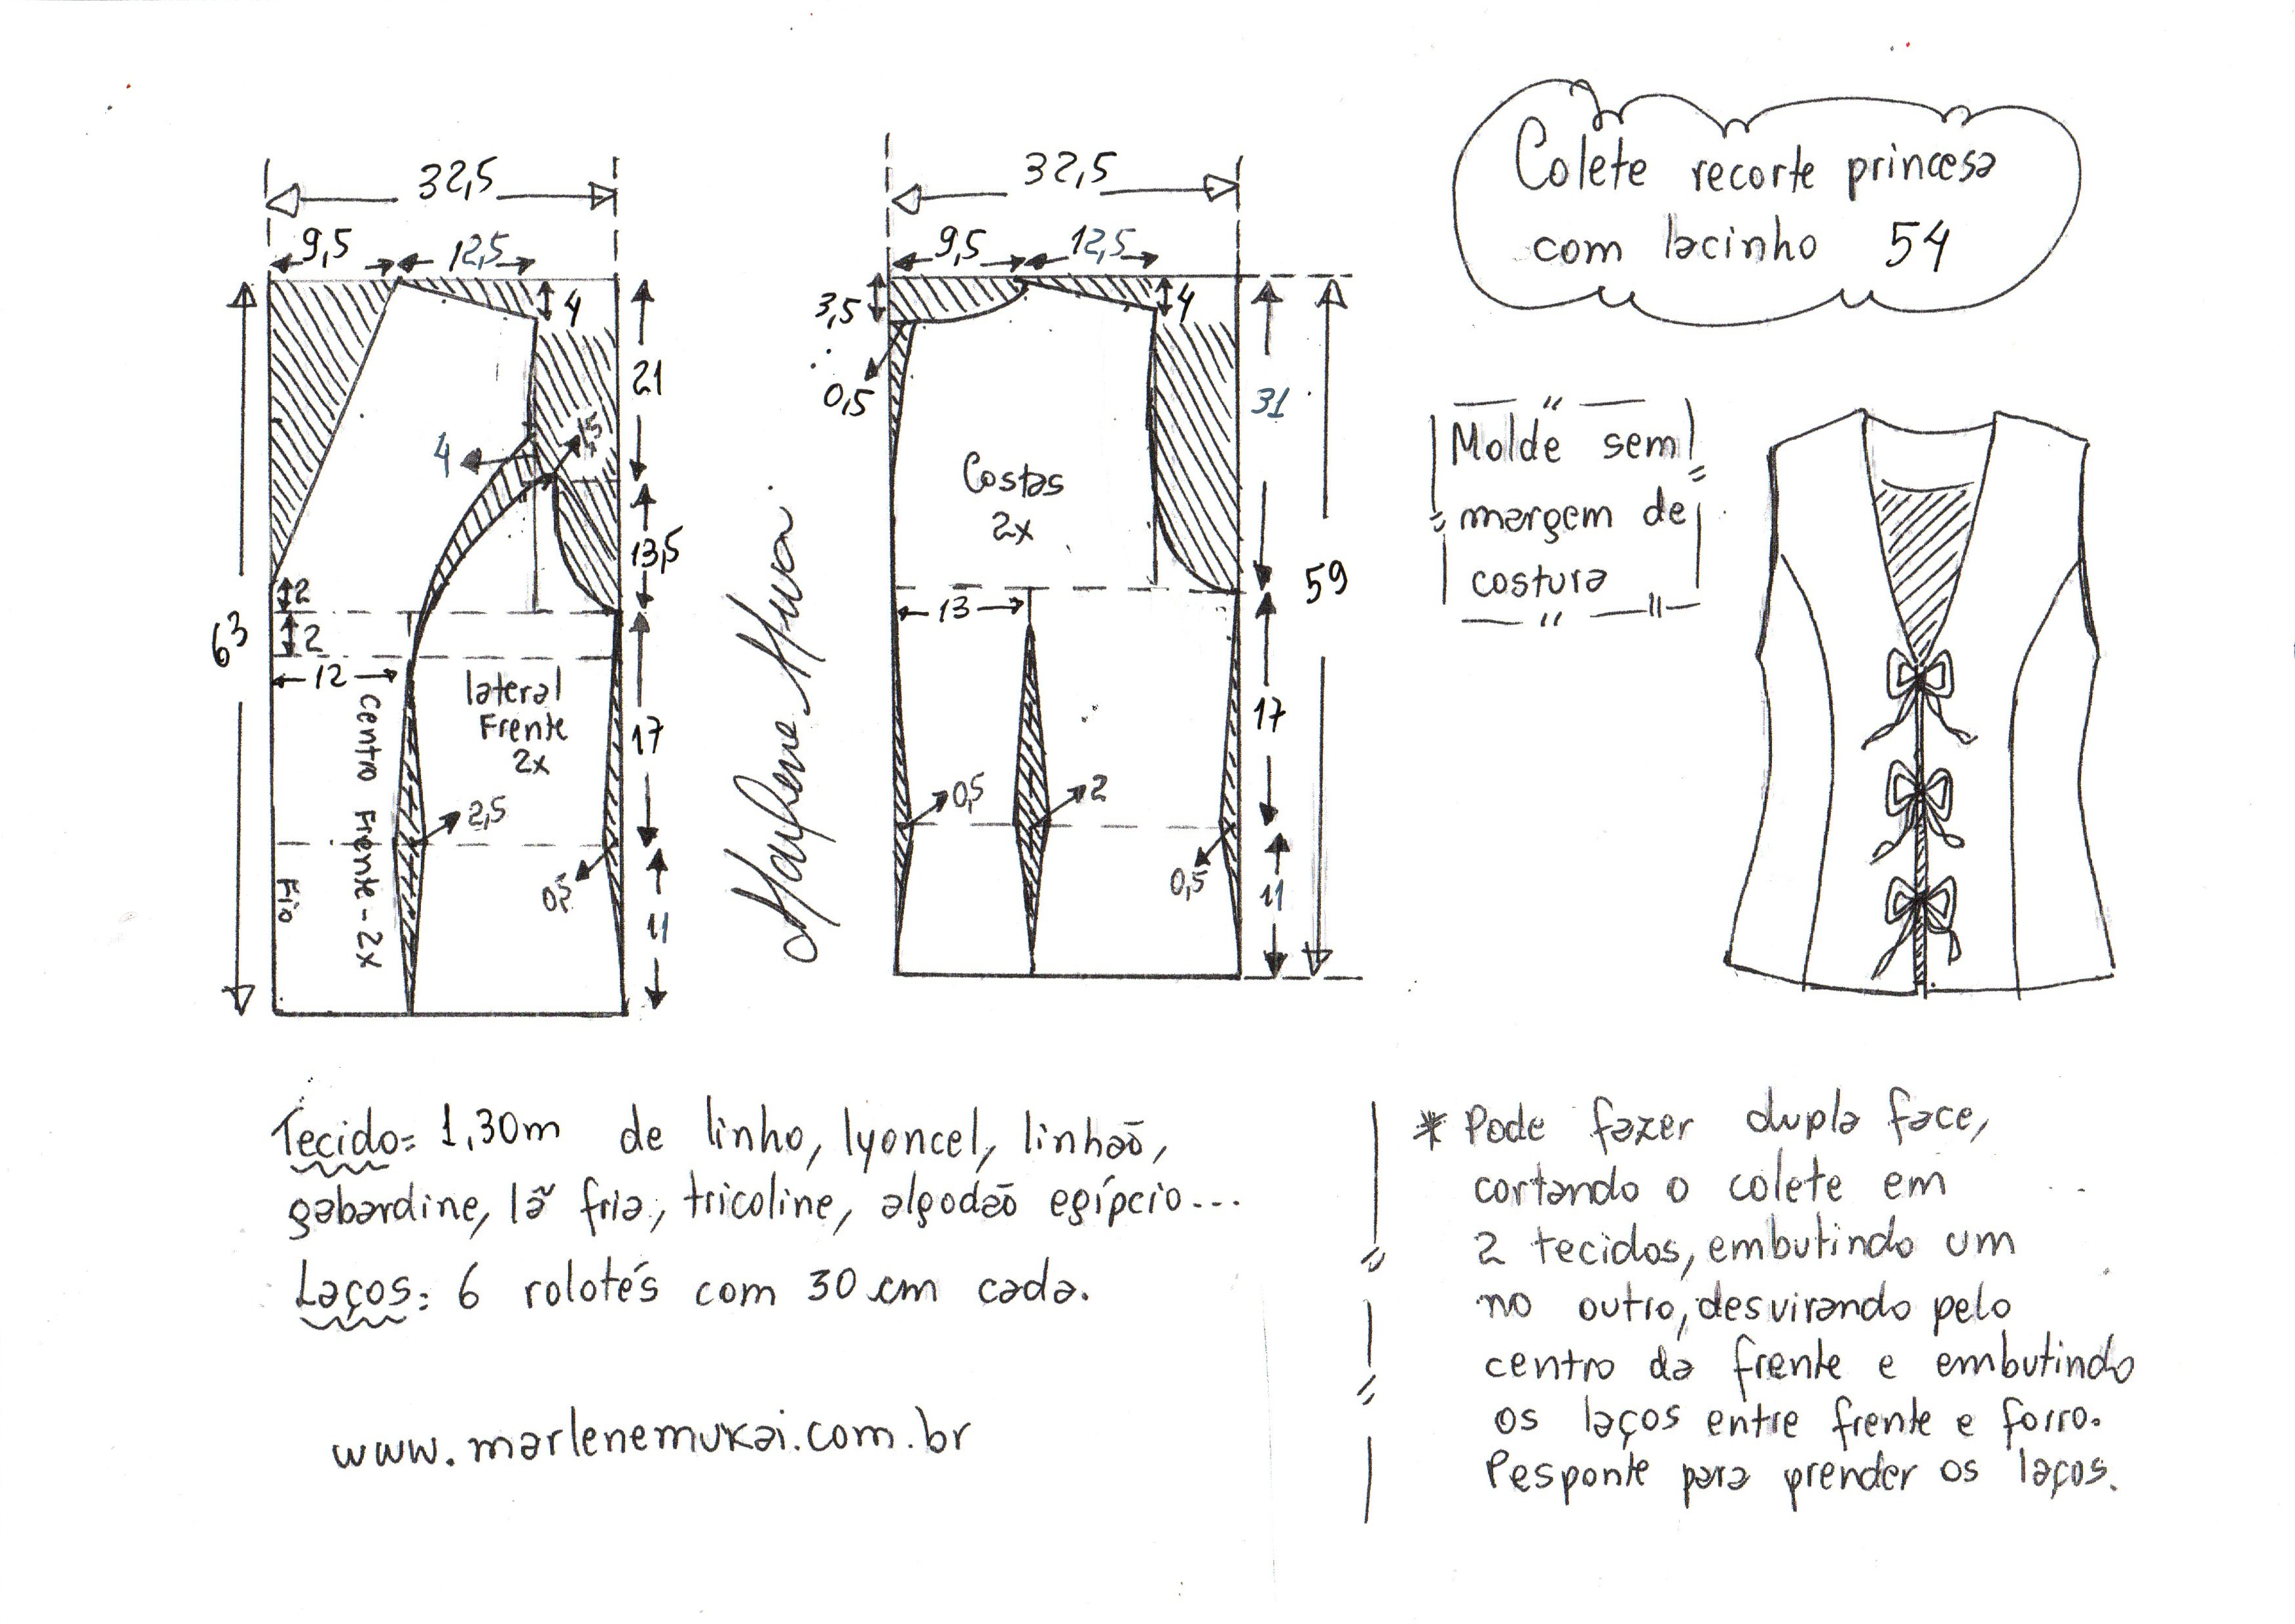 Colete recorte princesa
com lacinho 54
32,5
9,5
12,5
4
21
1,5
4
13,5
2
2
63
12
lateral
Frente
2x
17
Centro Frente - 2x
2,5
0,5
Fio
11
Marlene Mukai
32,5
9,5
12,5
3,5
4
0,5
31
Costas
2x
59
13
17
0,5
2
0,5
11
Molde sem
margem de
costura
Tecido= 1,30m de linho, lyoncel, linhão,
gabardine, lã fria, tricoline, algodão egípcio...
Laços: 6 rolotés com 30 cm cada.
www.marlenemukai.com.br
* Pode fazer dupla face,
cortando o colete em
2 tecidos, embutindo um
no outro, desvirando pelo
centro da frente e embutindo
os laços entre frente e forro.
Pesponte para prender os laços.